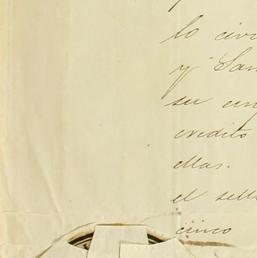 lo civ
y San
su em
credito
ellas.
el sell
cinco